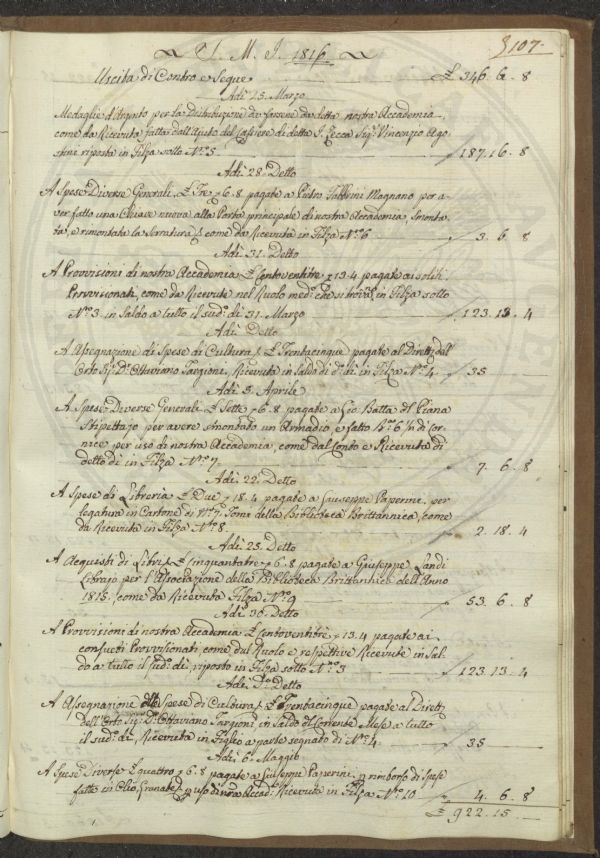 I. M. I. 1816
107.
Uscita di Contro e Segue £ 346. 6. 8
Adì 25. Marzo
Medaglie d'Argento per la Distribuzione da farsene da detta nostra Accademia
come da Ricevuta fatta dall'Aiuto del Cassiere di detta I. Zecca Sig.r Vincenzio Ago
stini riposta in Filza sotto N.o 5 187. 16. 8
Adì 28. Detto
A Spese Diverse Generali £ Tre, 6. 8 pagate a Pietro Fabbrini Magnano per a
ver fatto una Chiave nuova alla Porta principale di nostra Accademia, smonta
ta, e rimontata la Serratura, come da Ricevuta in Filza N.o 6 3. 6. 8
Adì 31. Detto
A Provvisioni di nostra Accademia £ Centoventitre, 13. 4 pagate ai soliti
Provvisionati, come da Ricevute nel Ruolo med.o che si trova in Filza sotto
N.o 3. in Saldo a tutto il sud.o dì 31. Marzo 123. 13. 4
Adì Detto
A Assegnazione di Spese di Cultura £ Trentacinque pagate al Dirett.e del
Orto Sig.r D.r Ottaviano Targioni, Ricevuta in Saldo di d.o dì in Filza N.o 4 35
Adì 5. Aprile
A Spese Diverse Generali £ Sette, 6. 8 pagate a Gio. Batta del Piana
Stipettajo per avere smontato un Armadio e fatto B.a 6 1/2 di Cor
nice per uso di nostra Accademia, come dal Conto e Ricevuta di
detto dì in Filza N.o 7 7. 6. 8
Adì 22. Detto
A Spese di Libreria £ Due, 18. 4 pagate a Giuseppe Paperini per
legatura in Cartone di N.o 7. Tomi della Biblioteca Brittannica, come
da Ricevuta in Filza N.o 8 2. 18. 4
Adì 25. Detto
A Acquisti di Libri £ Cinquantatre, 6. 8 pagate a Giuseppe Landi
Librajo per l'Associazione della Biblioteca Brittannica dell'Anno
1815, come da Ricevuta Filza N.o 9 53. 6. 8
Adì 30. Detto
A Provvisioni di nostra Accademia £ Centoventitre, 13. 4 pagate ai
consueti Provvisionati, come dal Ruolo e respettive Ricevute in Sal
do a tutto il sud.o dì, riposto in Filza sotto N.o 3 123. 13. 4
Adì D.o Detto
A Assegnazione delle Spese di Cultura £ Trentacinque pagate al Dirett.e
dell'Orto Sig.r D.r Ottaviano Targioni in Saldo del Corrente Mese a tutto
il sud.o dì, Ricevuta in Foglio a parte segnato di N.o 4 35
Adì 6. Maggio
A Spese Diverse £ quattro, 6. 8 pagate a Giuseppe Paperini in rimborso di Spese
fatte in Olio, Granate, uso di nostra Accad.a Ricevuta in Filza N.o 10 4. 6. 8
£ 922. 15